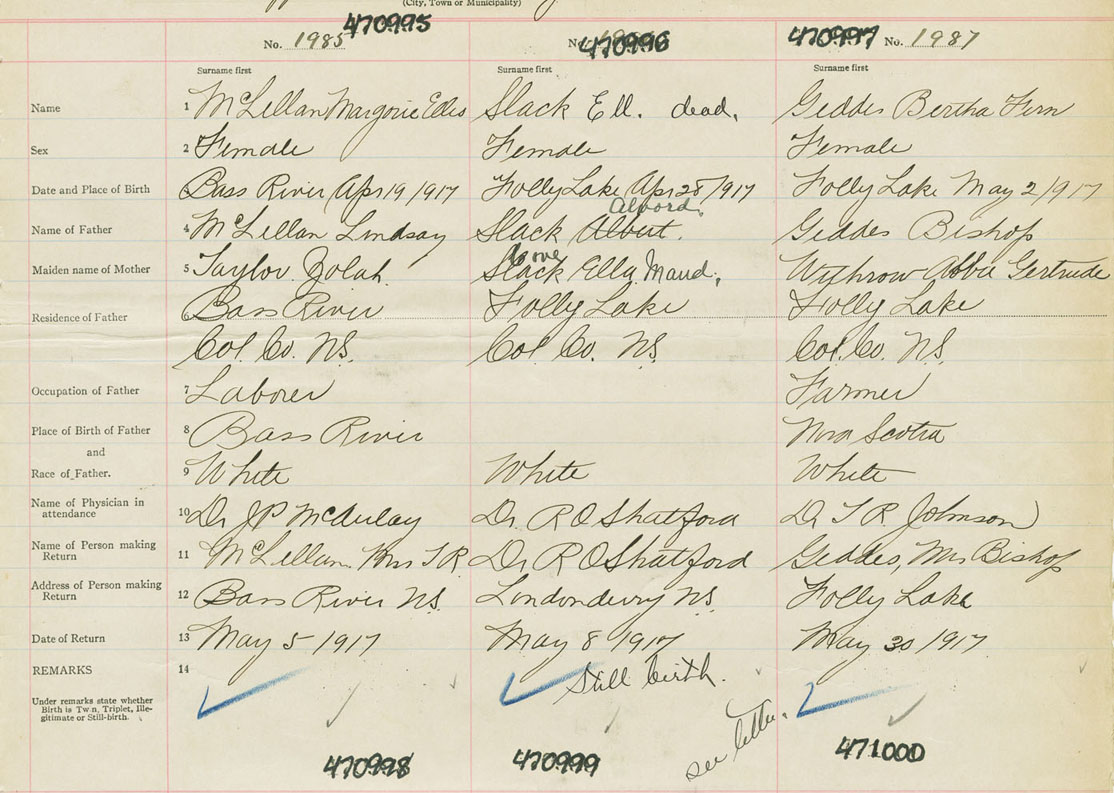 (City, Town or Municipality)
470995 470996 470997
No. 1985 No. No. 1987
Surname first Surname first Surname first
Name 1 McLellan Marjorie Slack Ell. dead. Geddes Bertha Fern
Sex 2 Female Female Female
Date and Place of Birth 3 Bass River Apr 19/917 Folly Lake Apr 28/917 Folly Lake May 2/917
Alvord.
Name of Father 4 McLellan Lindsay Slack Albert. Geddes Bishop
Maiden name of Mother 5 Taylor Zolah Slack Ella Maud. Withrow Abbie Gertrude
Residence of Father 6 Bass River Folly Lake Folly Lake
Col. Co. N.S. Col. Co. N.S. Col. Co. N.S.
Occupation of Father 7 Laborer Farmer
Place of Birth of Father 8 Bass River Nova Scotia
and
Race of Father. 9 White White White
Name of Physician in
attendance 10 Dr JP McAulay Dr. R O Shatford Dr T R Johnson
Name of Person making
Return 11 McLellan Mrs T R Dr R O Shatford Geddes, Mrs Bishop
Address of Person making
Return 12 Bass River N.S. Londonderry N.S. Folly Lake
Date of Return 13 May 5 1917 May 8 1917 May 30 1917
REMARKS 14 Still birth.
Under remarks state whether
Birth is Twin, Triplet, Ille-
gitimate or Still-birth.
see letter.
470998 470999 471000